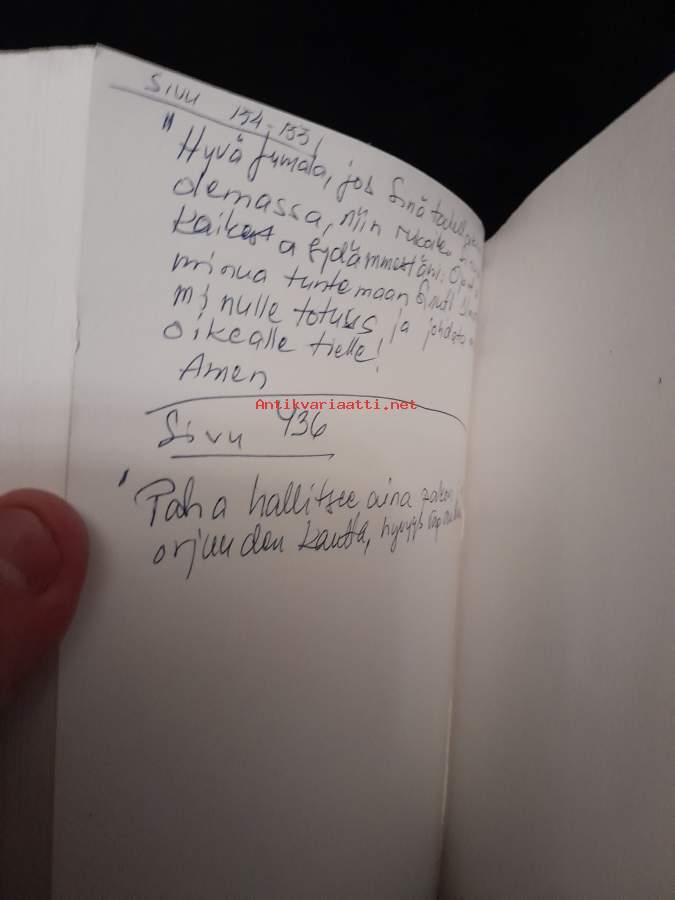 Sivu 154-155
"Hyvä Jumala, jos Sinä todella
olemassa, niin rukoilen
kaikesta sydämmestäni: Opeta
minua tuntemaan Sinut!
minulle totuus ja johdata
oikealle tielle!
Amen
Antikvariaatti.net
Sivu 436
"Paha hallitsee aina
orjuuden kautta, hyvyys